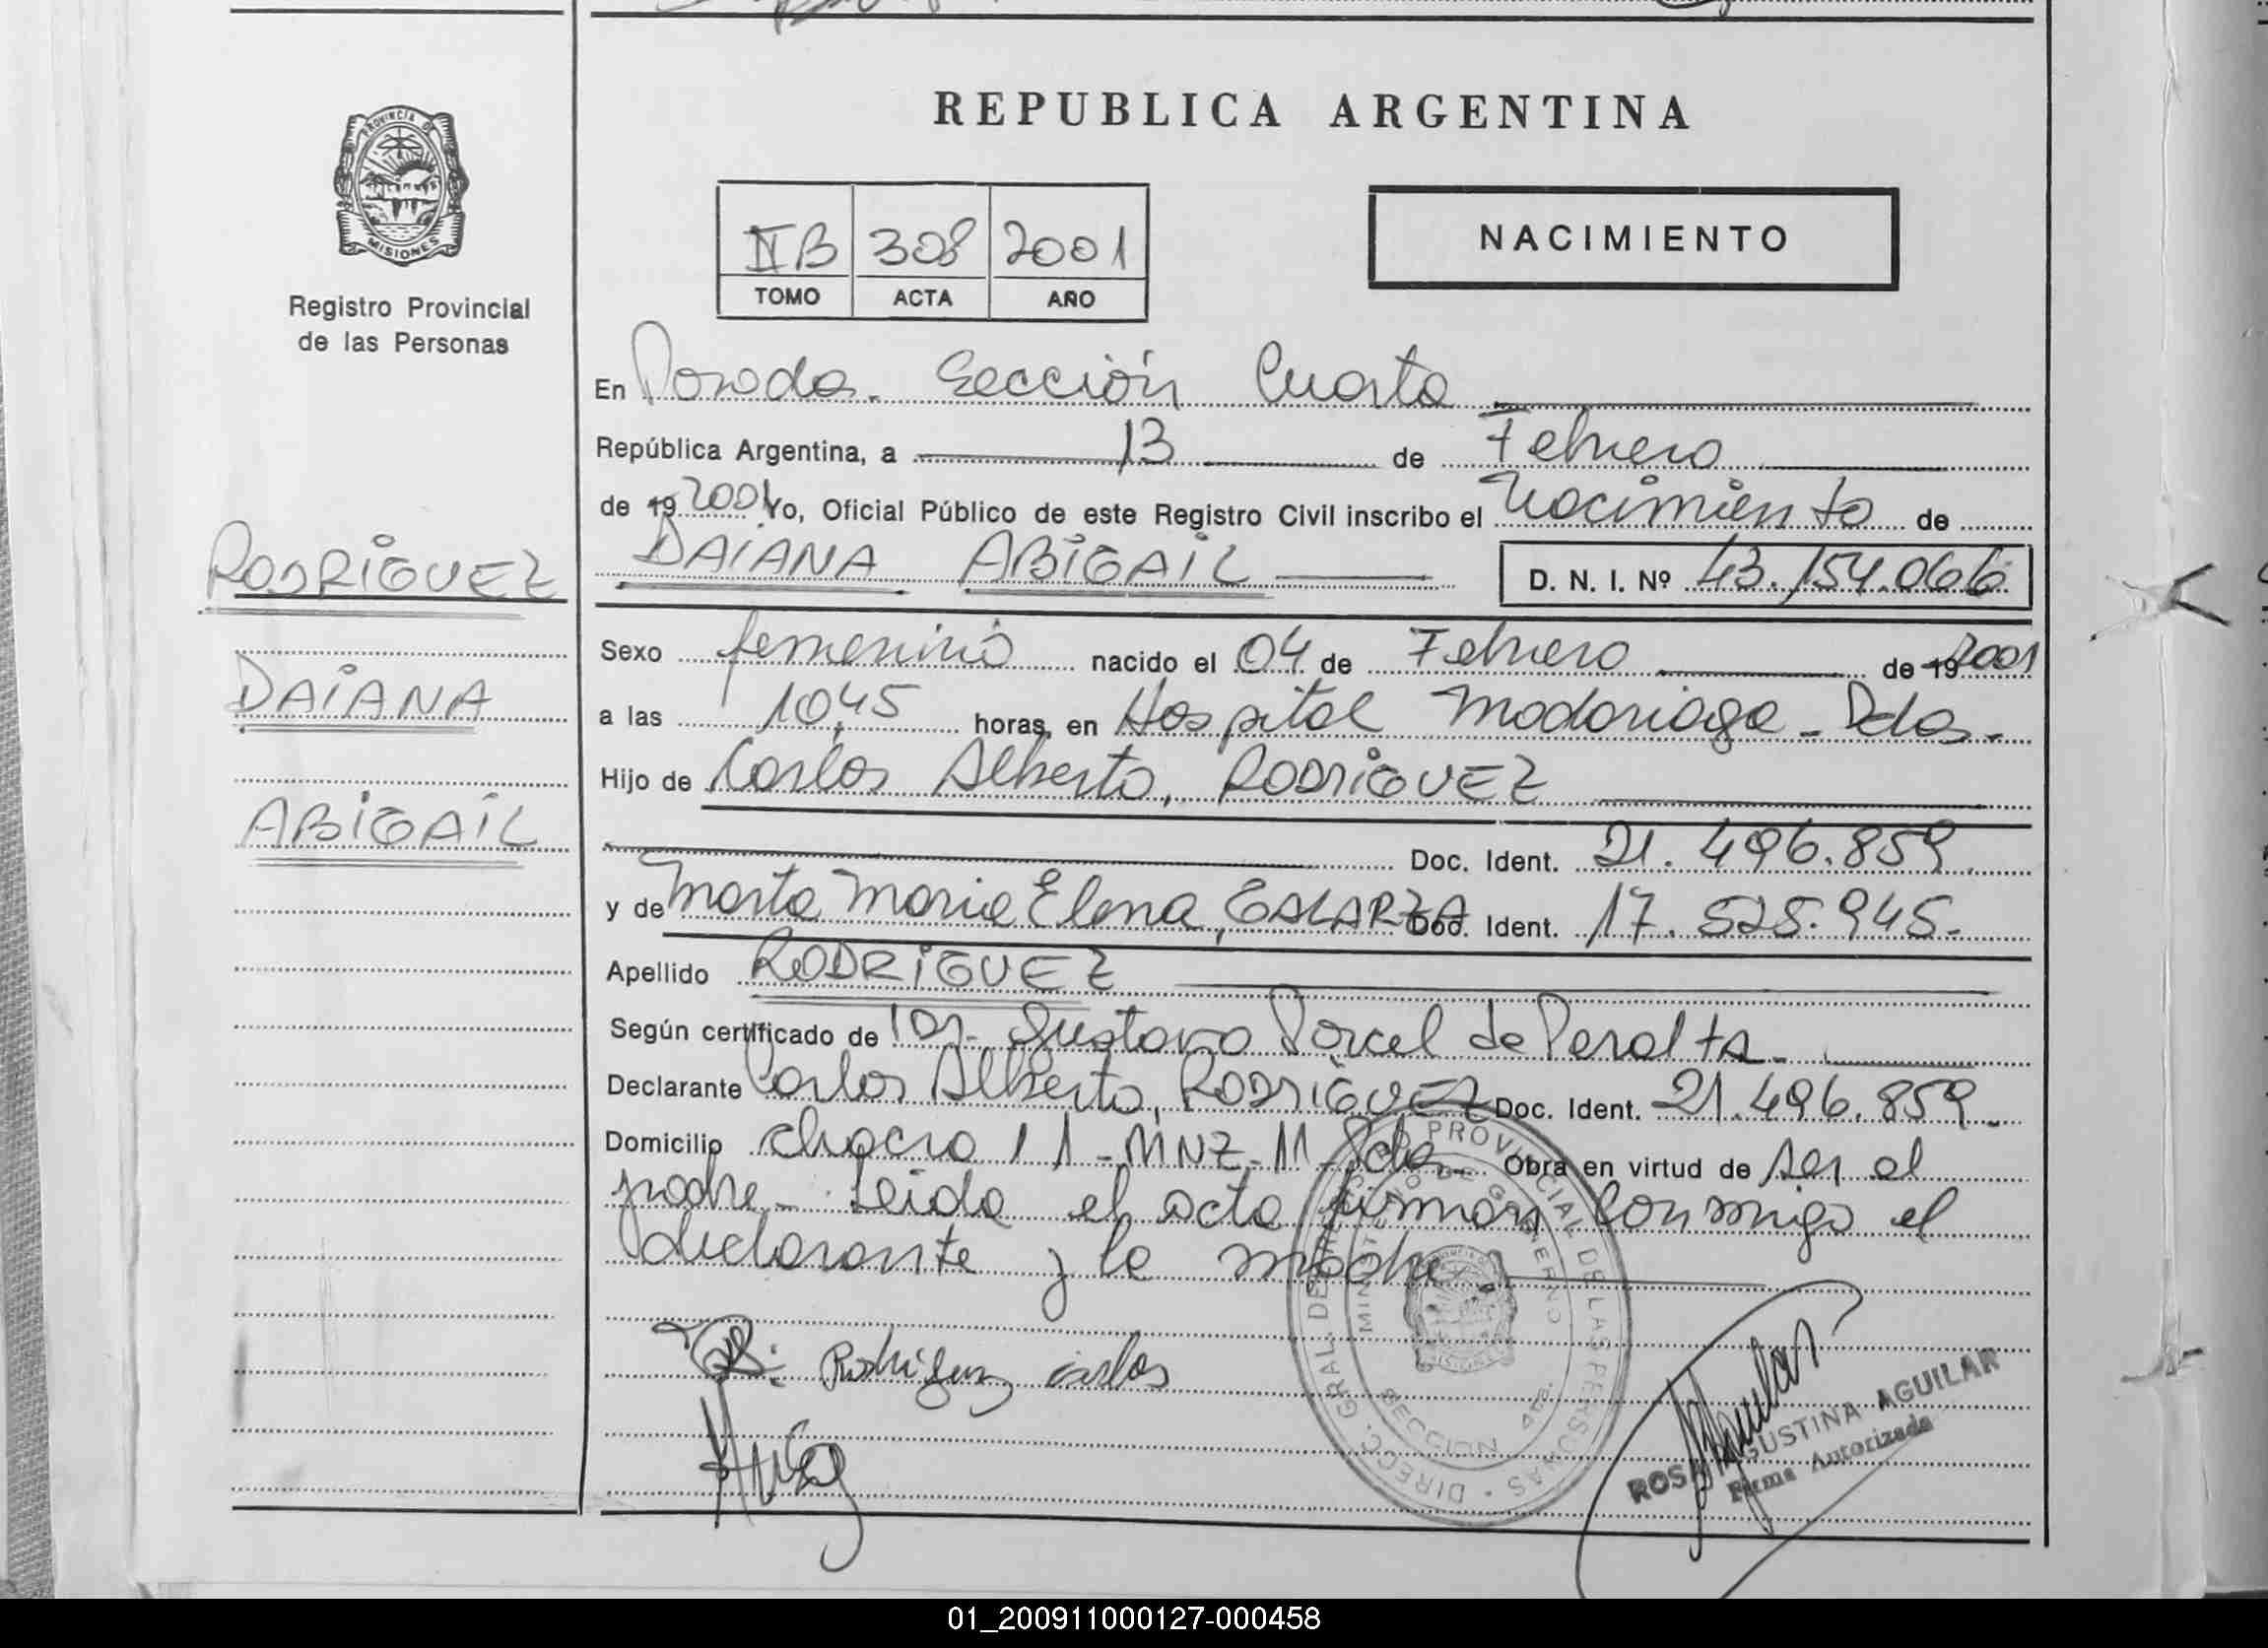 REPUBLICA ARGENTINA
PROVINCIA DE
MISIONES
Registro Provincial
de las Personas
IIB 308 2001
TOMO ACTA AÑO
NACIMIENTO
En Posadas. Sección Cuarta
República Argentina, a 13 de Febrero
de 19 2001 Yo, Oficial Público de este Registro Civil inscribo el Nacimiento de
DAIANA ABIGAIL D. N. I. Nº 43.154.066
RODRIGUEZ
DAIANA
ABIGAIL
Sexo femenino nacido el 04 de Febrero de 19 2001
a las 10,45 horas, en Hospital Madariaga - Pdas.
Hijo de Carlos Alberto, RODRIGUEZ
Doc. Ident. 21.496.859.
y de Marta Maria Elena, GALARZA Doc. Ident. 17.525.945.
Apellido RODRIGUEZ
Según certificado de Dr. Gustavo Porcel de Peralta.
Declarante Carlos Alberto, RODRIGUEZ Doc. Ident. 21.496.859.
Domicilio chacra 11 - MNZ - 11 Pdas. Obra en virtud de ser el
padre - Leida el acta firman conmigo el
declarante y la madre.
Rodriguez carlos
DIRECC. GRAL. DEL REGISTRO PROVINCIAL DE LAS PERSONAS
MINISTERIO DE GOBIERNO
SECCION 4ta.
Aguilar
ROSA AGUSTINA AGUILAR
Firma Autorizada
01_200911000127-000458